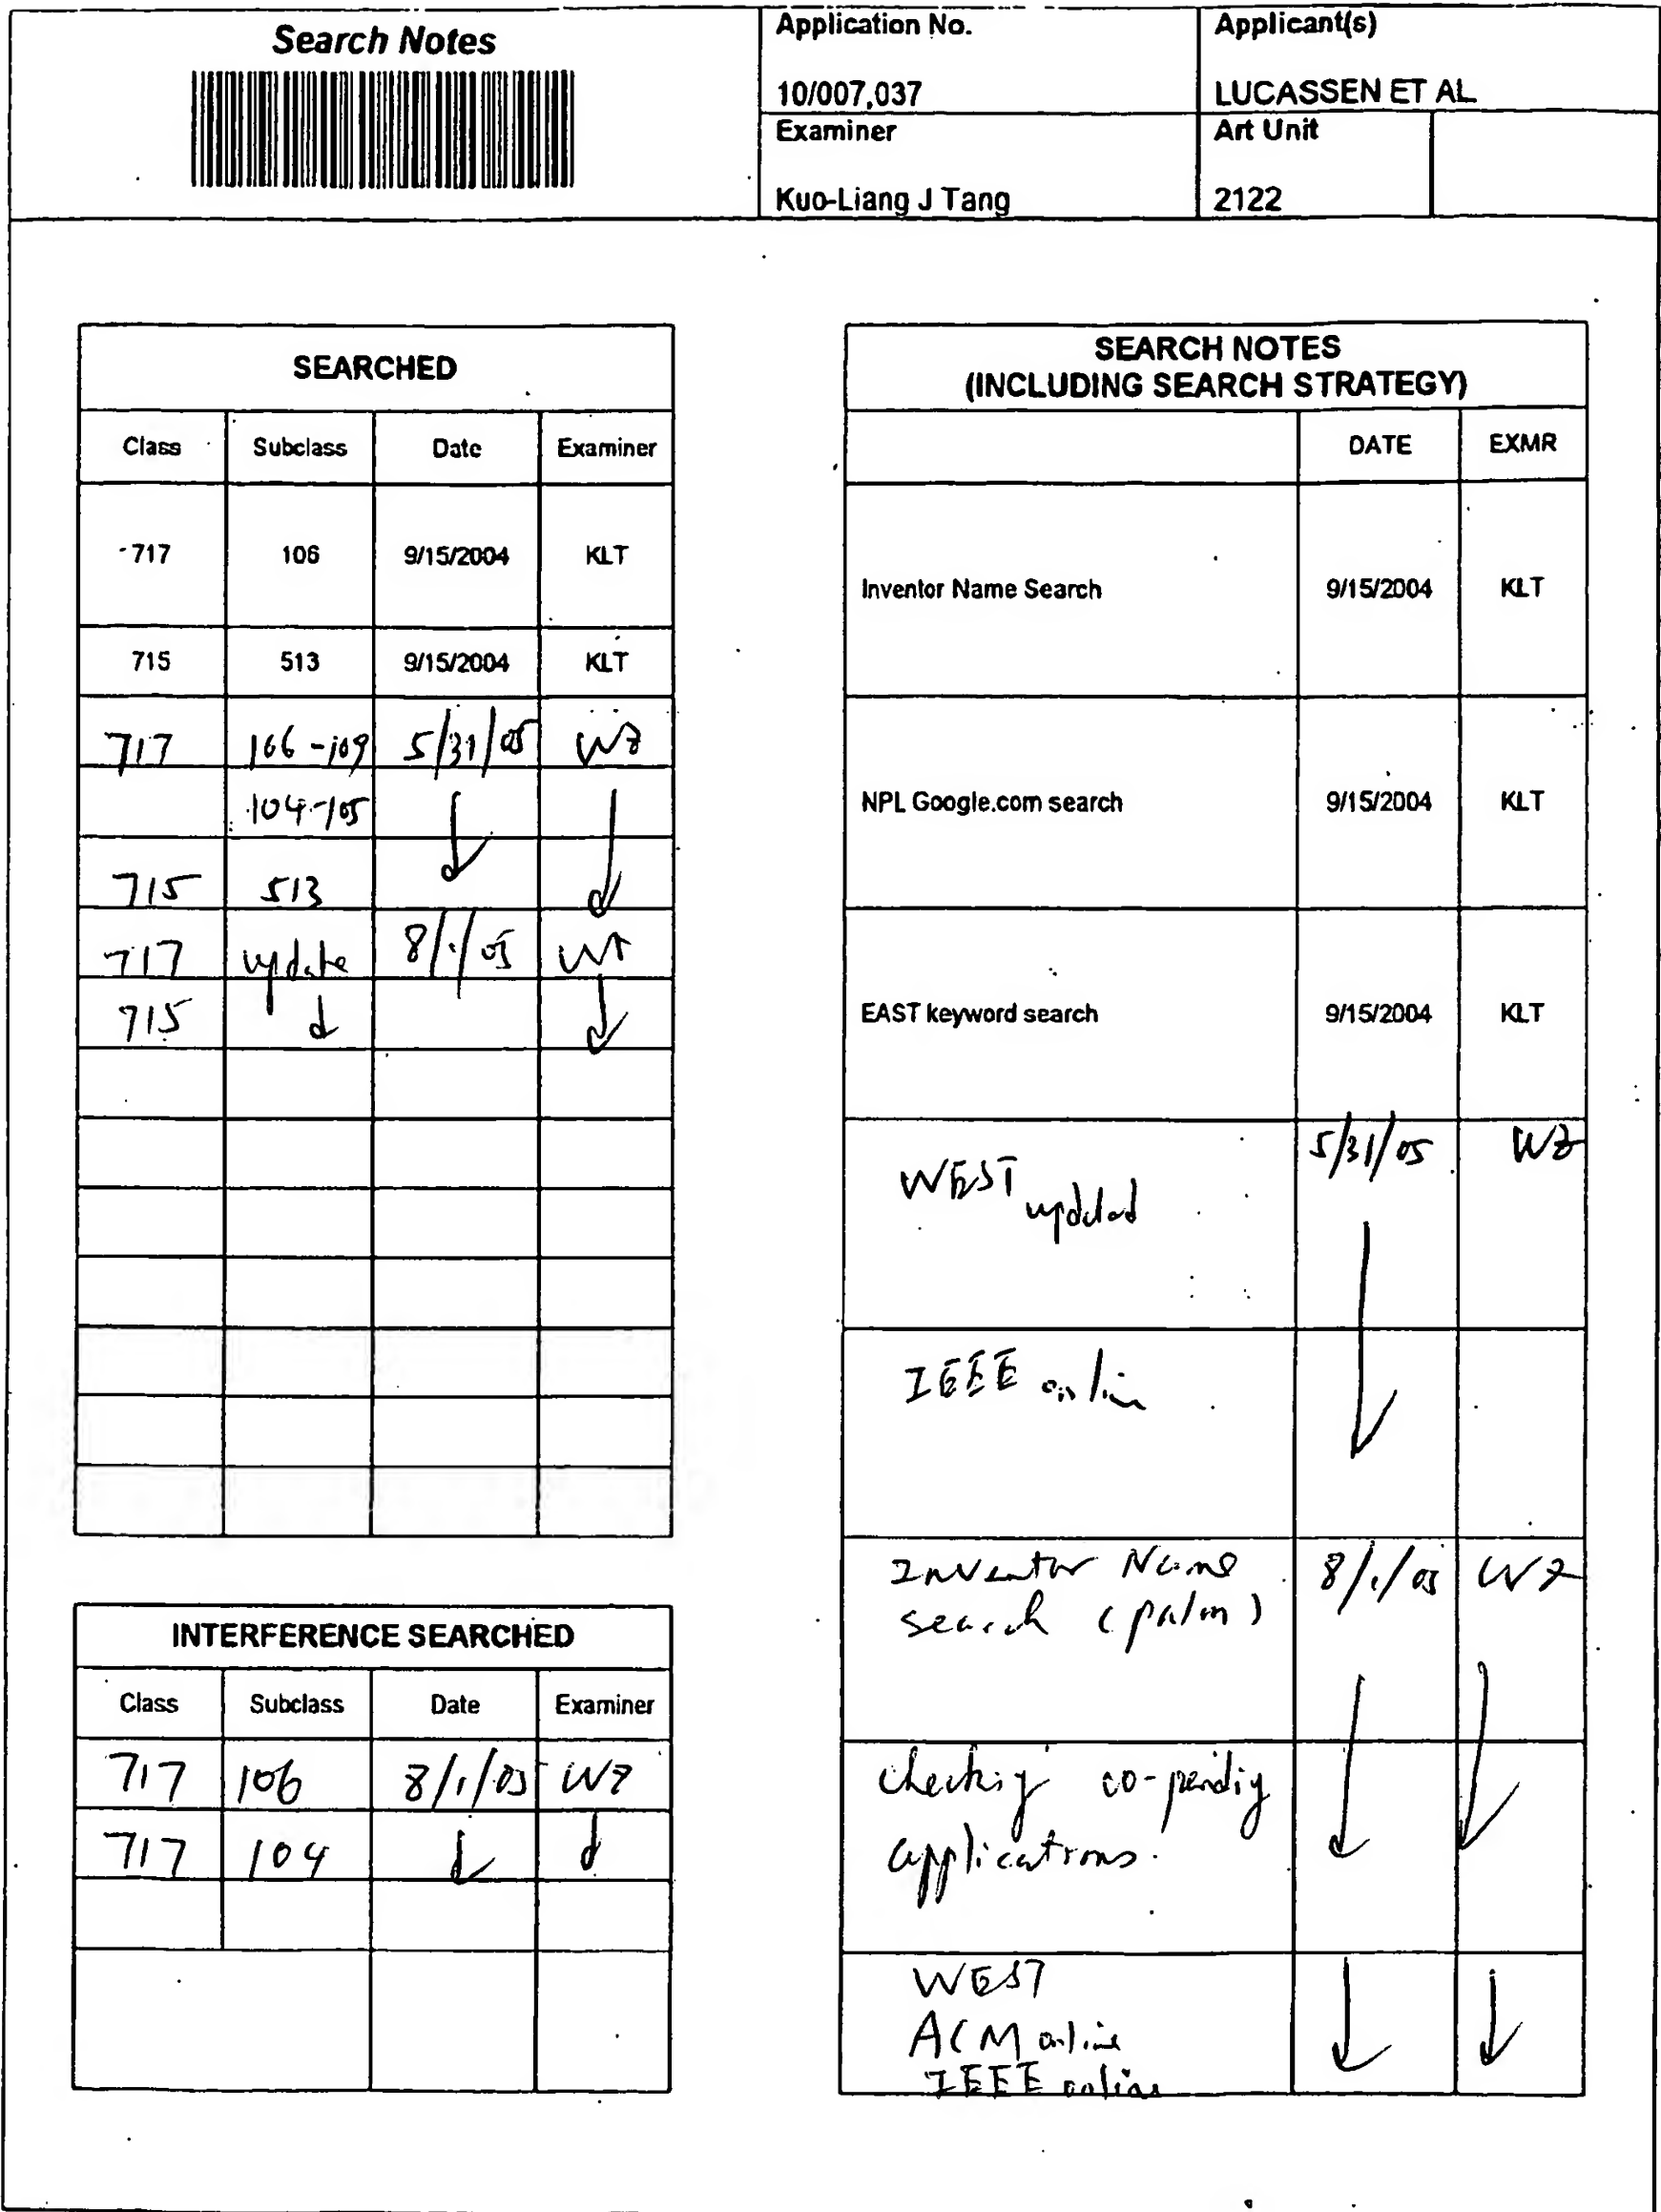 Search Notes
Application No.
10/007,037
Applicant(s)
LUCASSEN ET AL
Examiner
Kuo-Liang J Tang
Art Unit
2122
SEARCHED
Class Subclass Date Examiner
717 106 9/15/2004 KLT
715 513 9/15/2004 KLT
717 106-109 5/31/05 WZ
104-105
715 513
717 update 8/1/05
715
INTERFERENCE SEARCHED
Class Subclass Date Examiner
717 106 8/1/05 WZ
717 104
SEARCH NOTES
(INCLUDING SEARCH STRATEGY)
DATE EXMR
Inventor Name Search 9/15/2004 KLT
NPL Google.com search 9/15/2004 KLT
EAST keyword search 9/15/2004 KLT
WEST updated 5/31/05 WZ
IEEE online
Inventor Name 8/1/05 WZ
search (palm)
checking co-pending
applications.
WEST
ACM online
IEEE online